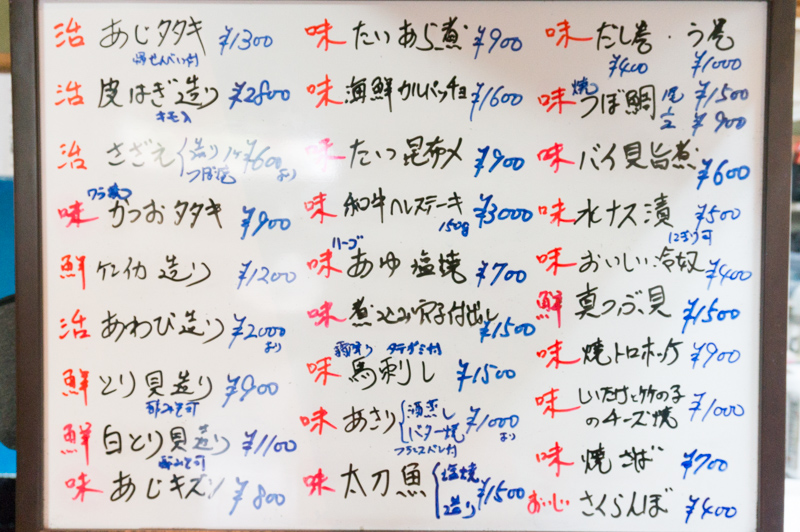 活 あじタタキ ¥1300
骨せんべい付
活 皮はぎ造り ¥2800
キモ入
活 さざえ 造り 1ケ ¥600より
つぼ焼
ワラ焼き
味 かつおタタキ ¥900
鮮 ケンイカ造り ¥1200
活 あわび造り ¥2000より
鮮 とり貝造り ¥900
酢みそ可
鮮 白とり貝造り ¥1100
酢みそ可
味 あじキズシ ¥800
味 たいあら煮 ¥900
味 海鮮カルパッチョ ¥1600
味 たいっ昆布〆 ¥900
味 和牛ヘレステーキ ¥3000
150g
ハーブ
味 あゆ塩焼 ¥700
味 煮込み穴子付出し ¥1500
霜ふり タテガミ付
味 馬刺し ¥1500
味 あさり 酒蒸し ¥1000より
バター焼
フランスパン付
味 太刀魚 塩焼 ¥1500
造り
味 だし巻・う巻
¥400 ¥1000
焼
味 つぼ鯛 ¥1500
1/2 ¥900
味 バイ貝旨煮 ¥600
味 水ナス漬 ¥500
にぎり可
味 おいしい冷奴 ¥400
鮮 真つぶ貝 ¥1500
味 焼トロホッケ ¥900
味 しいたけと竹の子
のチーズ焼 ¥1000
味 焼さば ¥700
おいしい さくらんぼ ¥400